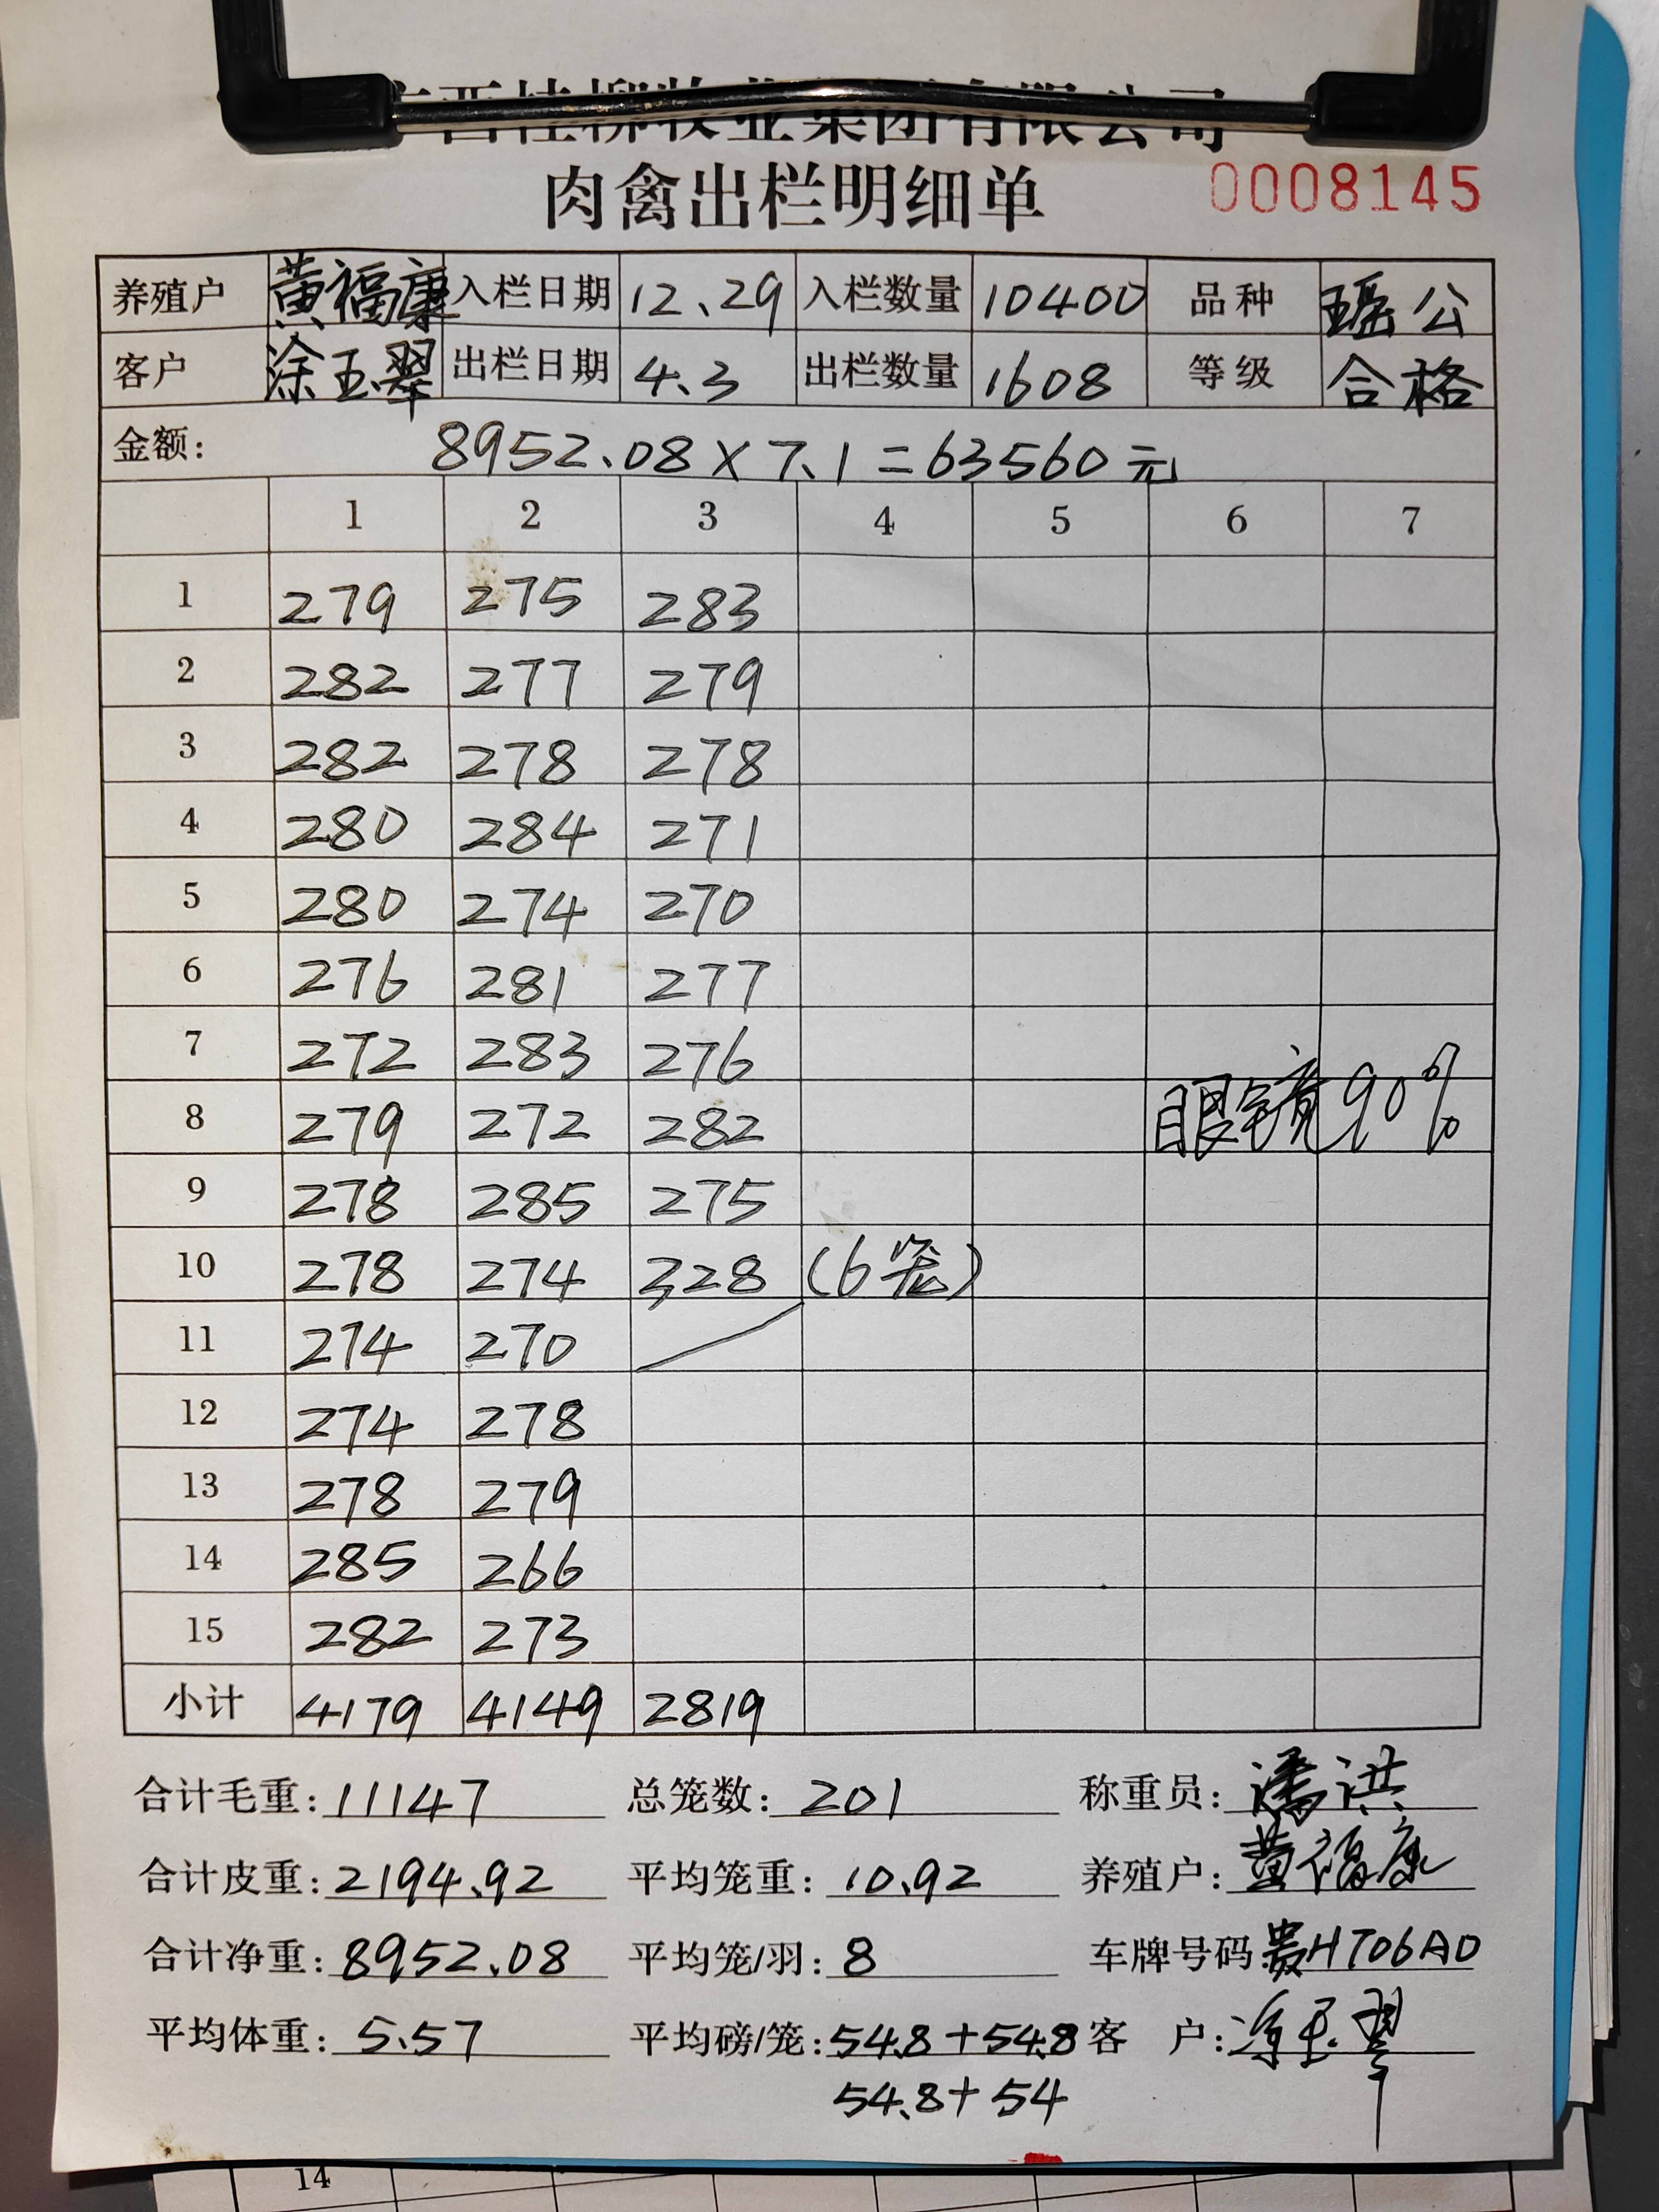 西桂柳牧业集团有限公司
肉禽出栏明细单 0008145
养殖户 黄福康 入栏日期 12.29 入栏数量 10400 品种 瑶公
客户 涂玉翠 出栏日期 4.3 出栏数量 1608 等级 合格
金额: 8952.08×7.1=63560元
1 2 3 4 5 6 7
1 279 275 283
2 282 277 279
3 282 278 278
4 280 284 271
5 280 274 270
6 276 281 277
7 272 283 276
8 279 272 282 眼镜90%
9 278 285 275
10 278 274 328 (6笼)
11 274 270
12 274 278
13 278 279
14 285 266
15 282 273
小计 4179 4149 2819
合计毛重: 11147 总笼数: 201 称重员: 潘洪
合计皮重: 2194.92 平均笼重: 10.92 养殖户: 黄福康
合计净重: 8952.08 平均笼/羽: 8 车牌号码: 贵HT06A0
平均体重: 5.57 平均磅/笼: 54.8+54.8 客 户: 涂玉翠
54.8+54
14